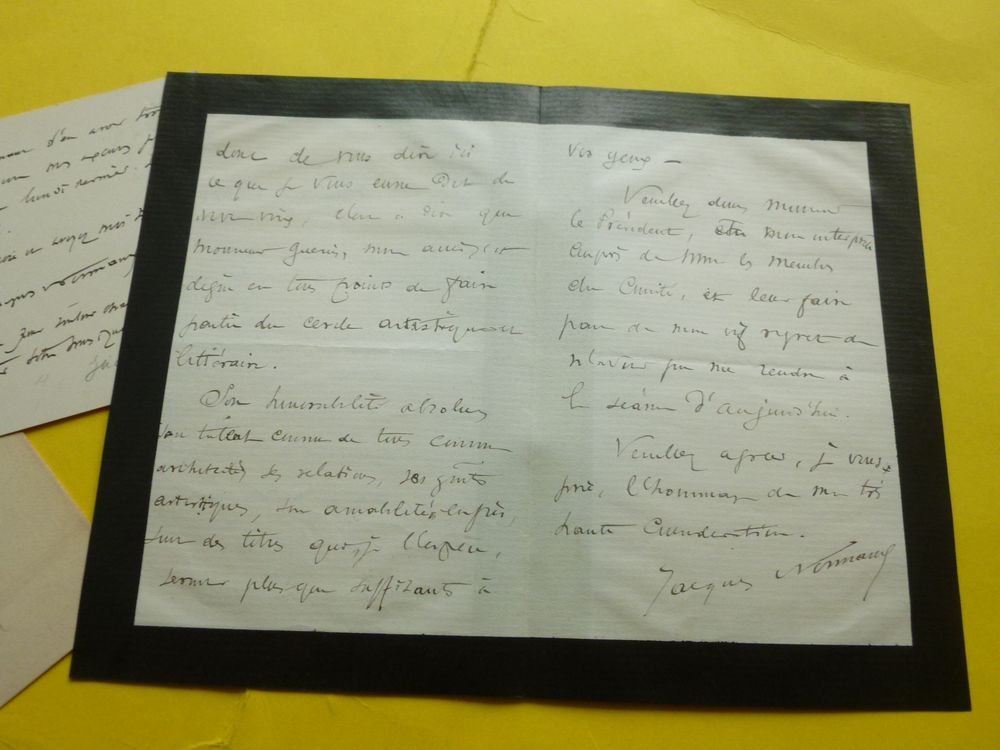 donc de vous dire ici
ce que je vous eusse dit de
vive voix, c'est à dire que
monsieur Guérin, mon ami, est
digne en tous points de faire
partie du cercle artistique et
littéraire.
Son honorabilité absolue
son talent connu de tous comme
architecte, ses relations, ses goûts
artistiques, son amabilité, enfin,
sont des titres qui, je l'espère,
seront plus que suffisants à
vos yeux —
Veuillez donc monsieur
le Président, être mon interprète
auprès de MM les membres
du Comité, et leur faire
part de mon vif regret de
n'avoir pu me rendre à
la séance d'aujourd'hui.
Veuillez agréer, je vous
prie, l'hommage de ma très
haute considération.
Jacques Normand
d'en avoir
lundi dernier.
Normand